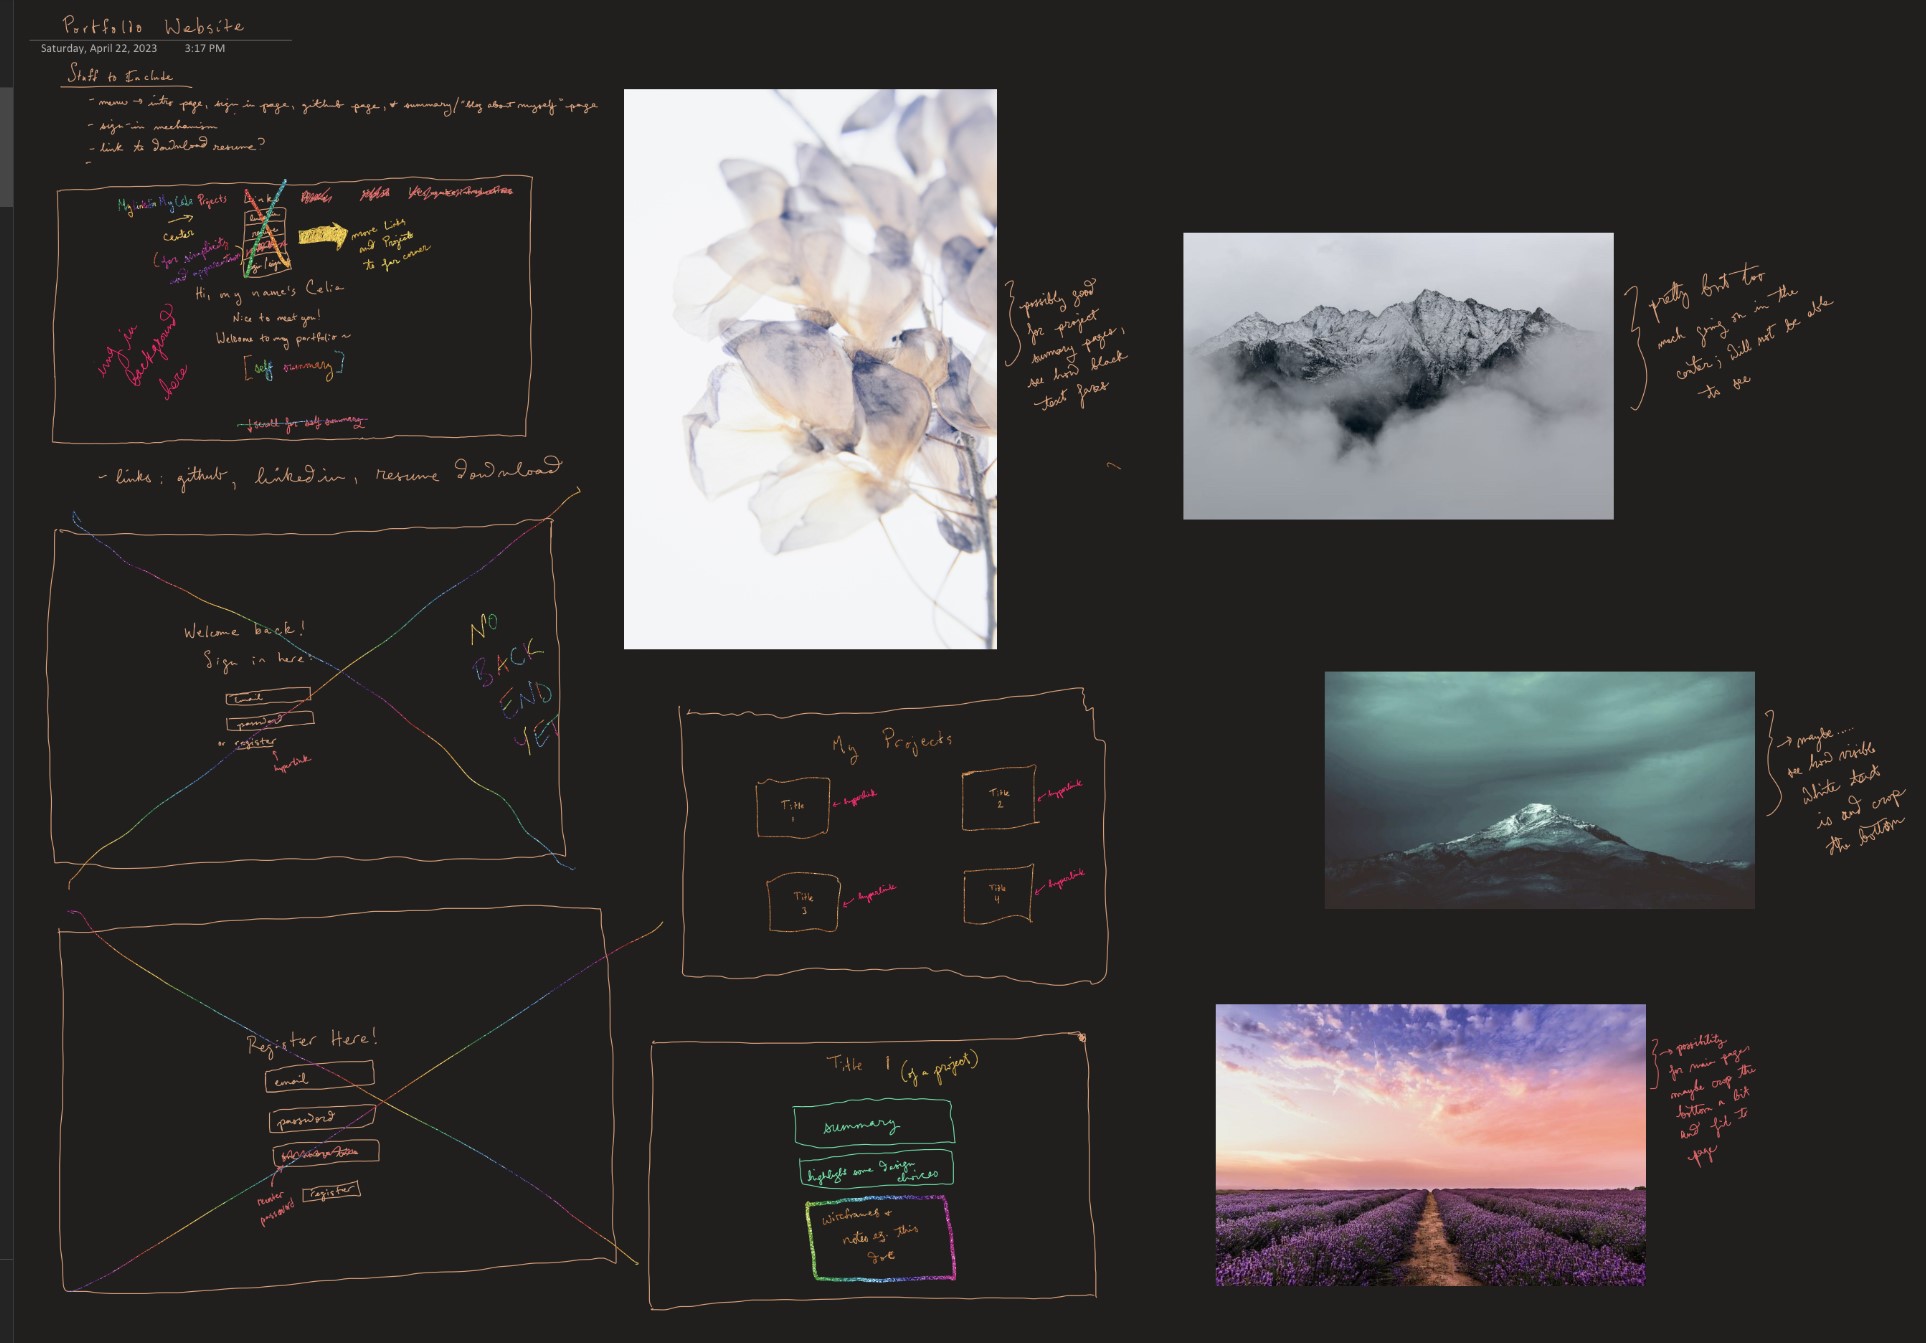 Portfolio Website
Saturday, April 22, 2023 3:17 PM
Stuff to Include
- menu → intro page, sign in page, github page, & summary/"blog about myself" page
- sign-in mechanism
- link to download resume?
-
My links My Projects
center
(for simplicity
and
move Links
and Projects
to far corner
Hi, my name's Celia
Nice to meet you!
Welcome to my portfolio ~
[self summary]
img in
background
here
↓ scroll for self summary
- links: github, linkedin, resume download
Welcome back!
Sign in here:
email
password
or register
↑
hyperlink
NO
BACK
END
YET
Register Here!
email
password
reenter
password
register
} possibly good
for project
summary pages,
see how black
text fares
My Projects
Title
1
← hyperlink
Title
2
← hyperlink
Title
3
← hyperlink
Title
4
← hyperlink
Title 1 (of a project)
summary
highlight some design
choices
wireframes +
notes eg. this
} pretty but too
much going on in the
center; will not be able
to see
} → maybe.....
see how visible
white text
is and crop
the bottom
} → possibility
for main page
maybe crop the
bottom a bit
and fit to
page